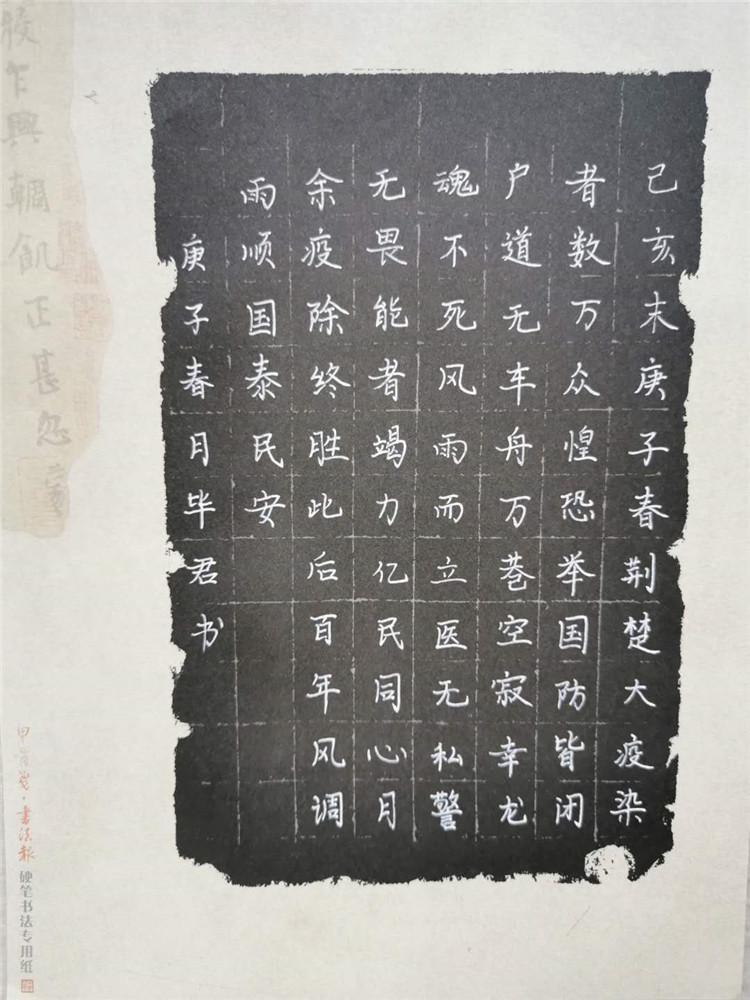 己亥末庚子春荆楚大疫染
者数万众惶恐举国防皆闭
户道无车舟万巷空寂幸龙
魂不死风雨而立医无私警
无畏能者竭力亿民同心月
余疫除终胜此后百年风调
雨顺国泰民安
庚子春月毕君书
硬笔书法专用纸